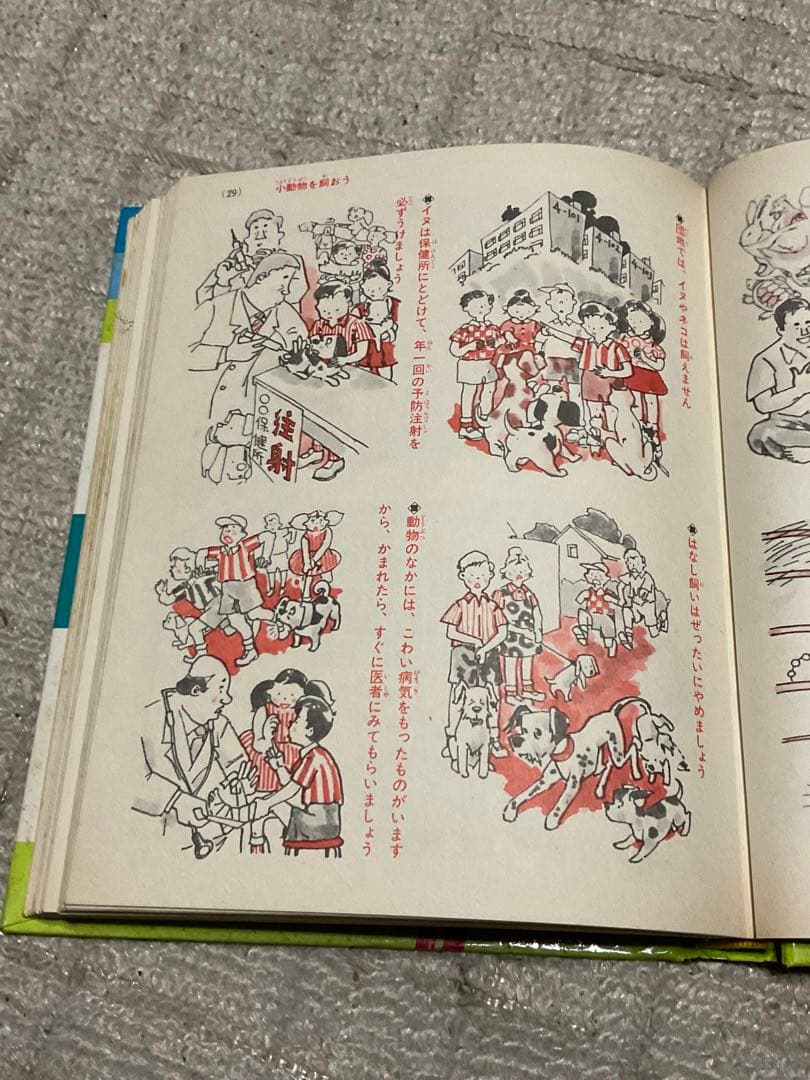 (29)
小動物を飼おう
団地では、イヌやネコは飼えません
イヌは保健所にとどけて、年一回の予防注射を
必ずうけましょう
はなし飼いはぜったいにやめましょう
動物のなかには、こわい病気をもったものがいます
から、かまれたら、すぐに医者にみてもらいましょう
4-101
4-102
〇〇保健所
注射